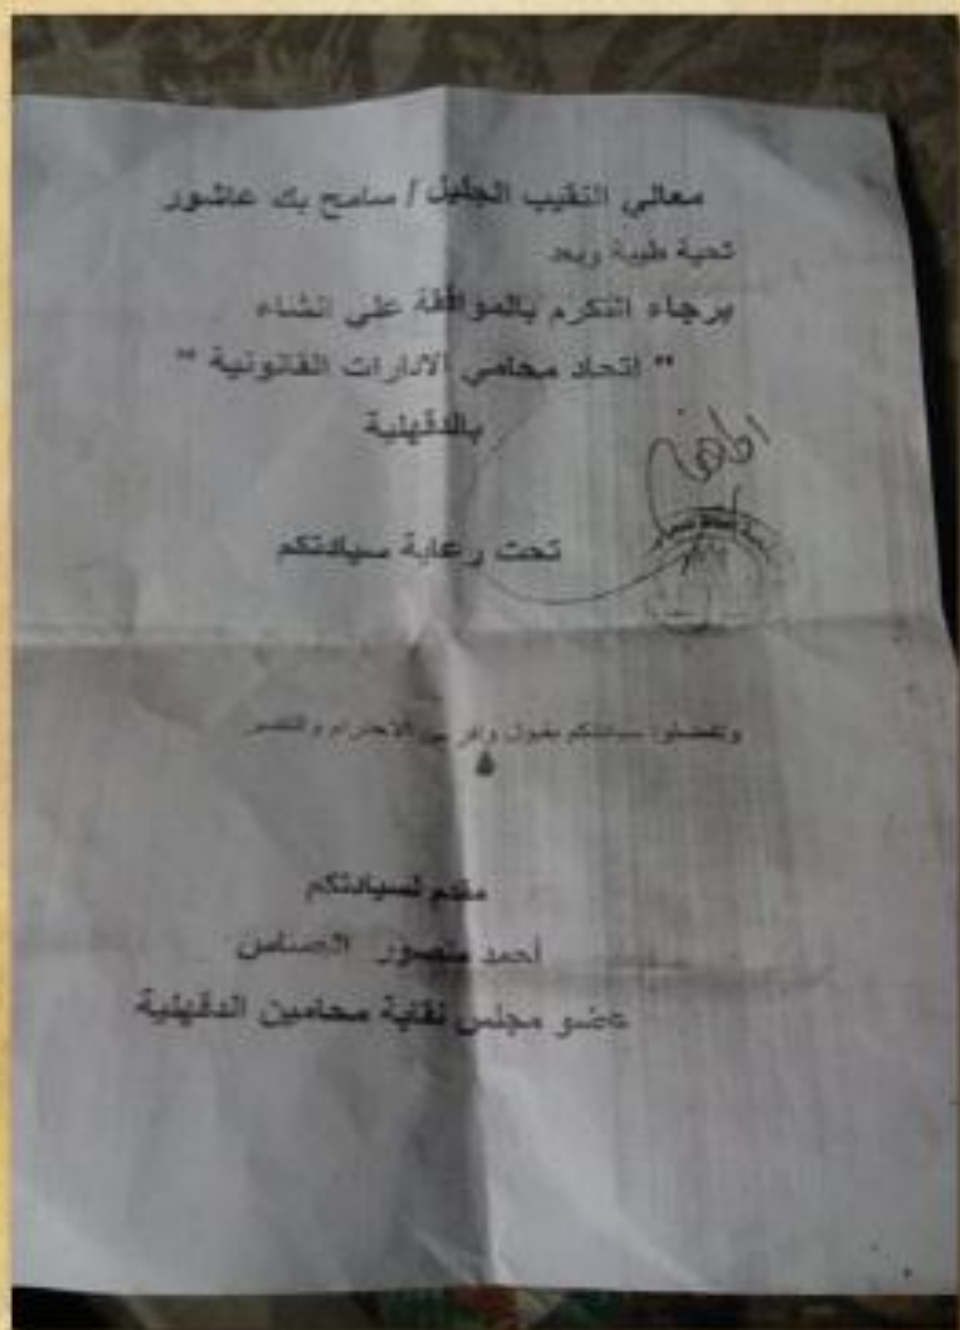 معالي النقيب الجليل / سامح بك عاشور
تحية طيبة وبعد
برجاء التكرم بالموافقة على انشاء
" اتحاد محامي الادارات القانونية "
بالدقهلية
تحت رعاية سيادتكم
وتفضلوا سيادتكم بقبول وافر الاحترام والتقدير
مقدم لسيادتكم
أحمد منصور
عضو مجلس نقابة محامين الدقهلية